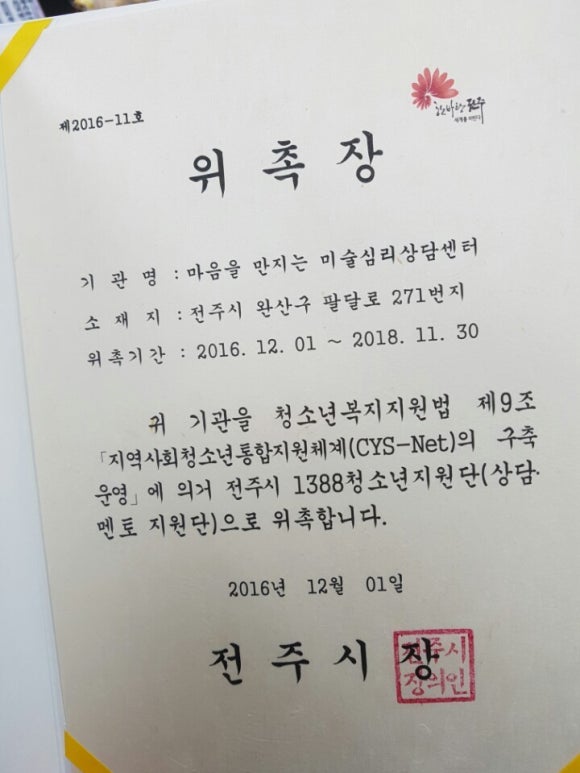 제2016-11호
한바탕 전주
세계를 비빈다
위 촉 장
기 관 명 : 마음을 만지는 미술심리상담센터
소 재 지 : 전주시 완산구 팔달로 271번지
위촉기간 : 2016. 12. 01 ~ 2018. 11. 30
귀 기관을 청소년복지지원법 제9조
「지역사회청소년통합지원체계(CYS-Net)의 구축
운영」에 의거 전주시 1388청소년지원단(상담·
멘토 지원단)으로 위촉합니다.
2016년 12월 01일
전 주 시 장
전주시
장의인